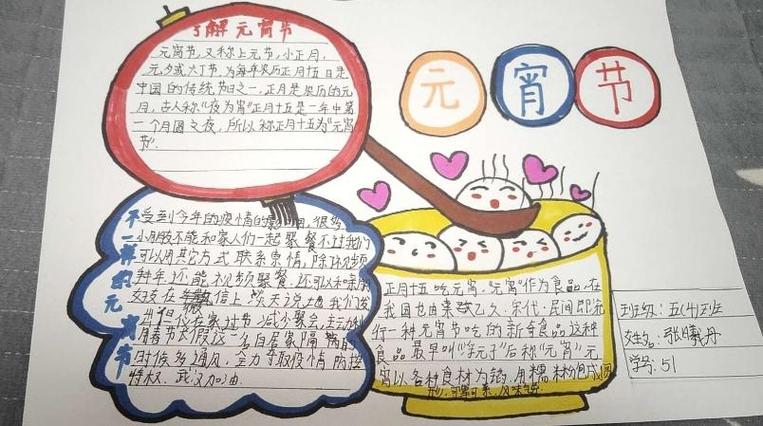 了解元宵节
元宵节,又称上元节,小正月,
元夕或大丁节,为每年农历正月十五日是
中国的传统节日之一,正月是农历的元
月,古人称"夜为宵"正月十五是一年中第
一个月圆之夜,所以称正月十五为"元宵
节".
元宵节
不一样的元宵节
受到今年的疫情的影响,很多
小朋友不能和家人们一起聚餐不过我们
可以用其它方式联系亲情,除夕视频
拜年还能视频聚餐.还可以和亲朋
好友在微信上谈天说地我们
过节 减少聚会
春节长假 自居家隔
时候多通风,全力争取疫情防控
武汉加油.
正月十五吃元宵,"元宵"作为食品,在
我国也由来已久.宋代,民间即流
行一种元宵节吃的新奇食品.这种
食品最早叫"浮元子"后称"元宵"元
宵以各种食材为馅.用糯米粉包成圆
形,可荤可素,风味
班级:五(4)班
姓名:张曦丹
学号:51